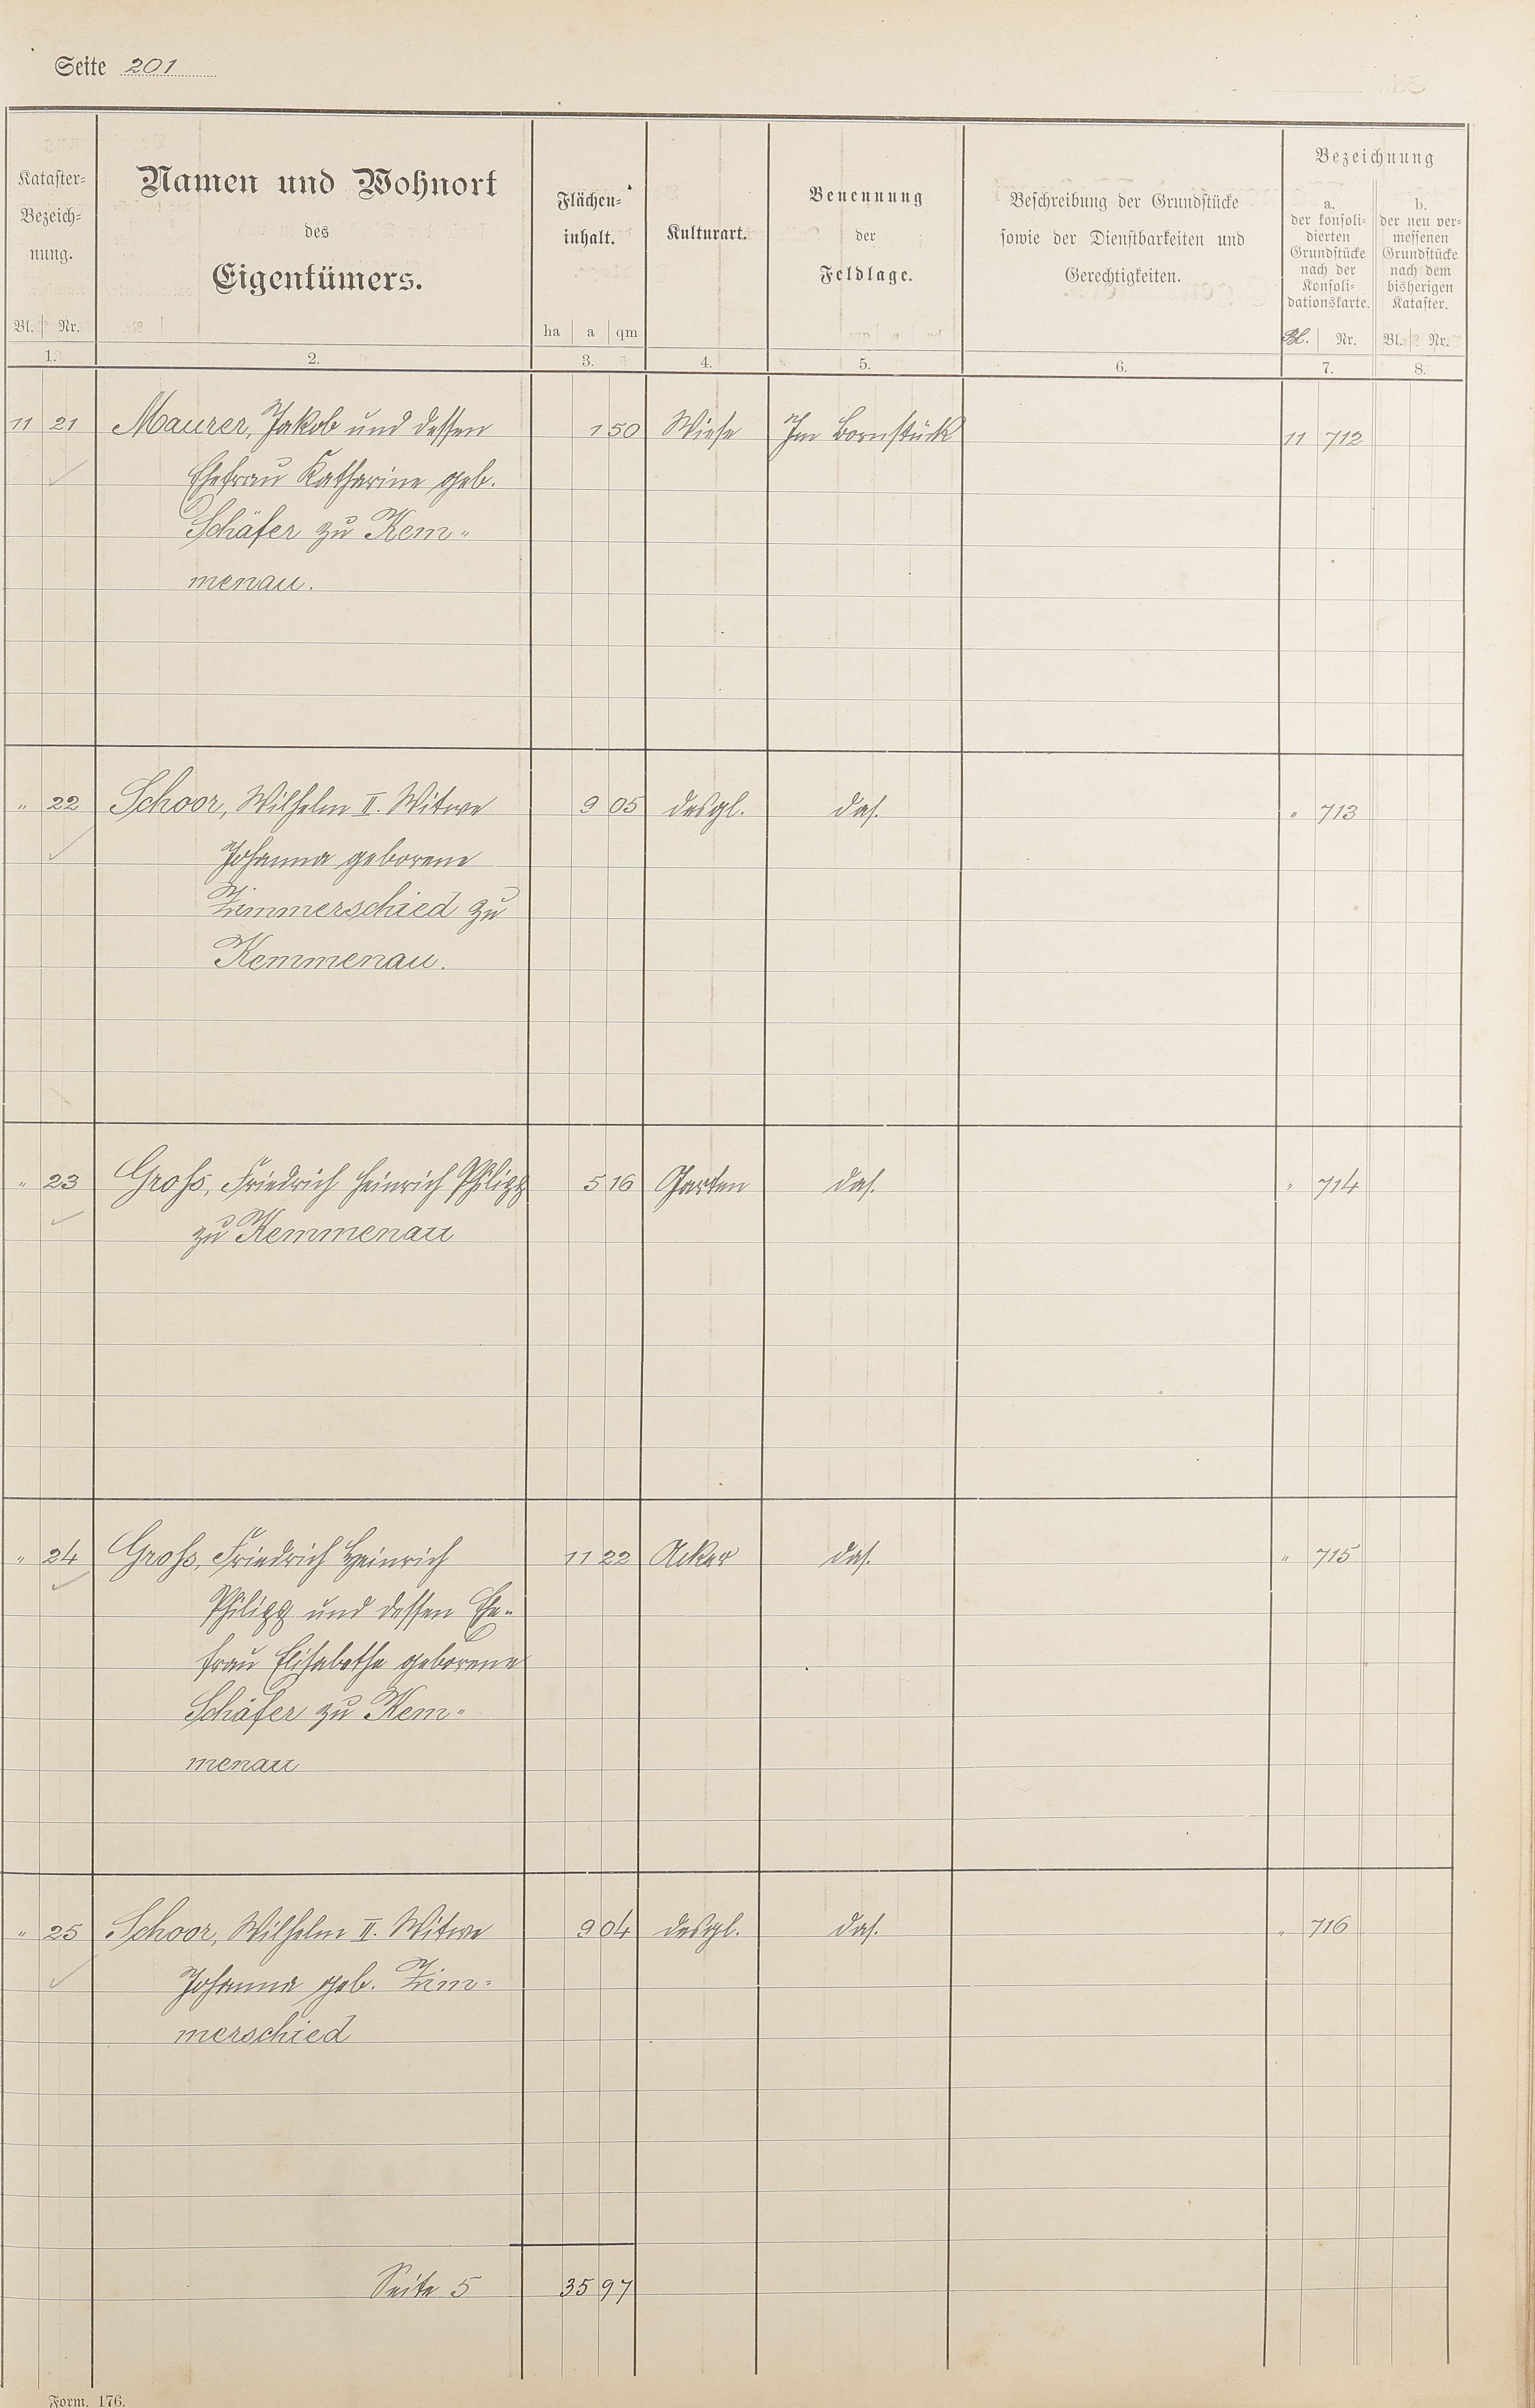 Seite 201
Kataster-
Bezeich-
nung.
Bl. Nr.
1.
Namen und Wohnort
des
Eigentümers.
2.
Flächen-
inhalt.
ha a qm
3.
Kulturart.
4.
Benennung
der
Feldlage.
5.
Beschreibung der Grundstücke
sowie der Dienstbarkeiten und
Gerechtigkeiten.
6.
Bezeichnung
a.
der konsoli-
dierten
Grundstücke
nach der
Konsoli-
dationskarte.
Bl. Nr.
7.
b.
der neu ver-
messenen
Grundstücke
nach dem
bisherigen
Kataster.
Bl. Nr.
8.
11 21 Maurer, Jakob und dessen 1 50 Wiese Im Bornstück 11 712
Ehefrau Katharine geb.
Schäfer zu Kem-
menau.
" 22 Schoor, Wilhelm II. Witwe 9 05 desgl. das. " 713
Johanna geborene
Zimmerschied zu
Kemmenau.
" 23 Groß, Friedrich Heinrich Philipp 5 16 Garten das. " 714
zu Kemmenau
" 24 Groß, Friedrich Heinrich 11 22 Acker das. " 715
Philipp und dessen Ehe-
frau Elisabetha geborene
Schäfer zu Kem-
menau
" 25 Schoor, Wilhelm II. Witwe 9 04 desgl. das. " 716
Johanna geb. Zim-
merschied
Seite 5 35 97
Form. 176.